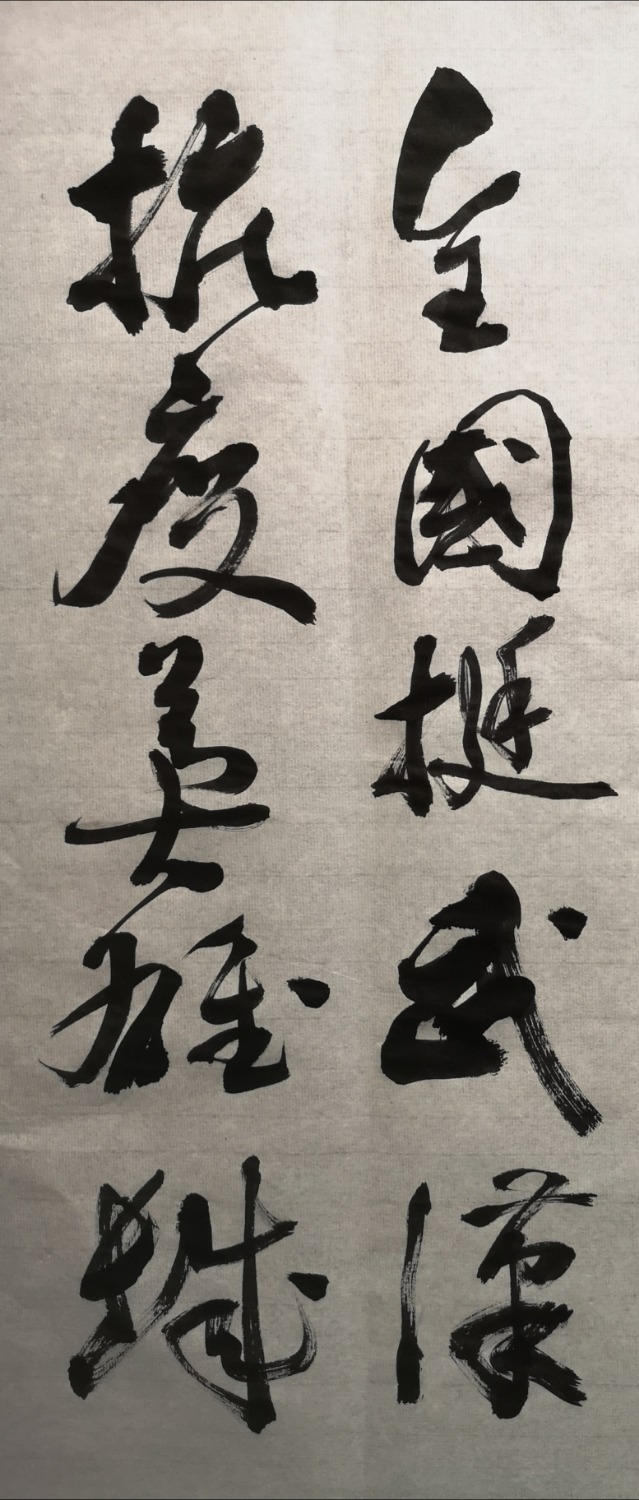 全國挺武漢
抗疫英雄城